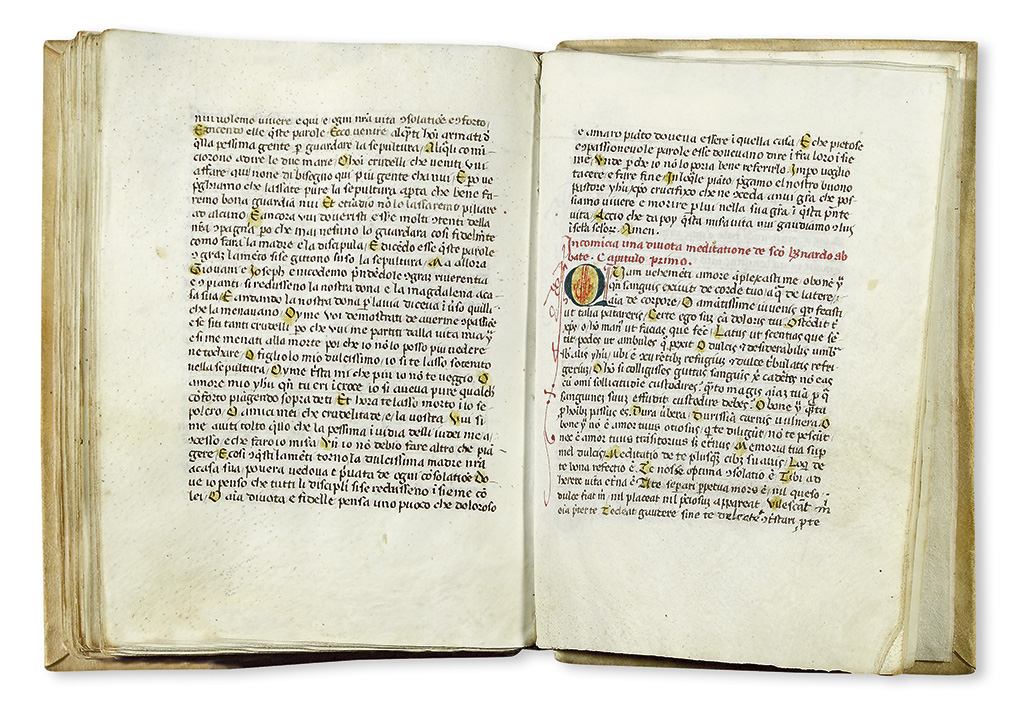 nui volemo vivere e qui e ogni nr̄a vita ⁊solatiōe ⁊ cōforto,
Edicento elle q̄ste parole Ecco venire alq̄ti hoī armati đ
q̄lla pessima gente p guardare la sepultura, Aliq̄li comī
ciorono a dire le due marie, Ohoi crudelli che veniti vui
affare qui none di bisogno qui piu gente cha nui, E po ve
p̄ghiamo che lassate pure la sepultura ap̄ta che bene fa,
remo bona guardia nui Et etiādio nō lo lassaremo piliare
ad alcuno, E ancora vui doveristi esse molti ⁊tenti della
nr̄a ⁊pagnia po che mai nesuno lo guardara cosi fidelm̄te
como fara la madre e la discipula, Edicēdo esse q̄ste parole
⁊ graz lamēto sise gittono suso la sepultura, Ma allora
Giovanī e Joseph e nicodemo p̄ndēdole ⁊ graz riverentia
⁊ pianti si redusseno la nostra dona e la magdalena aca,
sa sua, E andando la nostra dona p la via diceva ī uso quilli
che la menavano, Oyme voi demostrati de averme ⁊passiōe
e se siti tanti crudeli, po che vui me partiti dalla vita mia, ⁊
e si me menati alla morte poi che io nō lo posso piu vedere
ne tochare, O figliolo mio dulcissimo, io si te lasso soterato
nella sepultura, Oyme t̄sta mī che piu io nō te veggio, O
amore mio yhu q̄n tu eri ī croce io si aveva pure qualch
cōforto piāgendo sopra de ti, Et hora te lasso morto ī lo se,
polcro, O amici mei che crudelitade e, la vostra, Vui si
me aviti tolto q̄llo che la pessima īvidia delli iudei me a,
⁊cesso, e che faro io misa, Vn̄ io nō debio fare altro che piā
gere, E cosi ⁊ q̄sti lamēti torno la dulcissima madre nr̄a
acasa sua povera vedova e p̄vata de ogni ⁊solatiōe Do,
ve io penso che tutti li discipli si se redusseno īsieme cō
lei, O aīa divota e fidelle pensa uno puoco che doloroso
e amaro piāto doveva essere ī quella casa, E che pietose
e ⁊passionevole parole esse dovevano dire ī fra loro īsie
me, Vnde p che io nō lo poria bene referirlo, Impo voglio
tacere e fare fine, In lo q̄le piāto p̄gamo el nostro buono
pastore yhu xp̄o crucifixo che ne ⁊ceda anui gr̄a che pos,
siamo vivere e morire p lui nella sua gr̄a ī q̄sta p̄nte
vita, Accio che da pop q̄sta misa vita nui gaudiamo ⁊ lui
ī secla seclor, Amen,
Incomīcia una divota meditatione de scō b̄nardo ab
bate, Capitulo primo,
Qvam vehemēti amore ⁊plexasti me o bone y
q̄n sanguis exivit de corde tuo, aq̄ de latere,
aīa de corpore, O amātissime iuvenis qd fecisti
ut talia patereris, Certe ego suz cā doloris tui, Ostēdit t̄
xp̄o, o hō man⁹ ut facias que fec̄, Latus ut sentias que sē,
tit, pedes ut ambules q̄ pexit, O dulcis ⁊ desiderabilis umb
yhu, ubi ē exurētib⁹ refugiu ⁊ dulce t̄bulatis refri,
geriū, O hō si colligises guttas sanguīs x̄ cadētes nō eas
cū omī sollicitudīe custodires, q̄to magis aīaz tuā p q̄
sanguinez suuz effudit custodire debes, O bone y q̄ta
p hoīb⁹ passus es, Dura ūbera, Durissīa carnis vulnera, O
bone y nō ē amor tuus otiosus, q̄ te diligūt nō te pescūt
nec ē amor tuus trāsitorius sz et̄nus, Memoria tua sup
mel dulcis, Meditatio de te plusq̄ cib⁹ suavis, Loq̄ de
te bona refectio ē, Te nosse optima ⁊solatio ē, Tibi ad
herere vita et̄na ē, A te separi p̄petua mors ē, nil queso
dulce fiat mī, nil placeat nil p̄ciosuz appareat, Vilescāt mī
oīa pter te, Doleat gaudere sine te, delectet ⁊tristari, p te